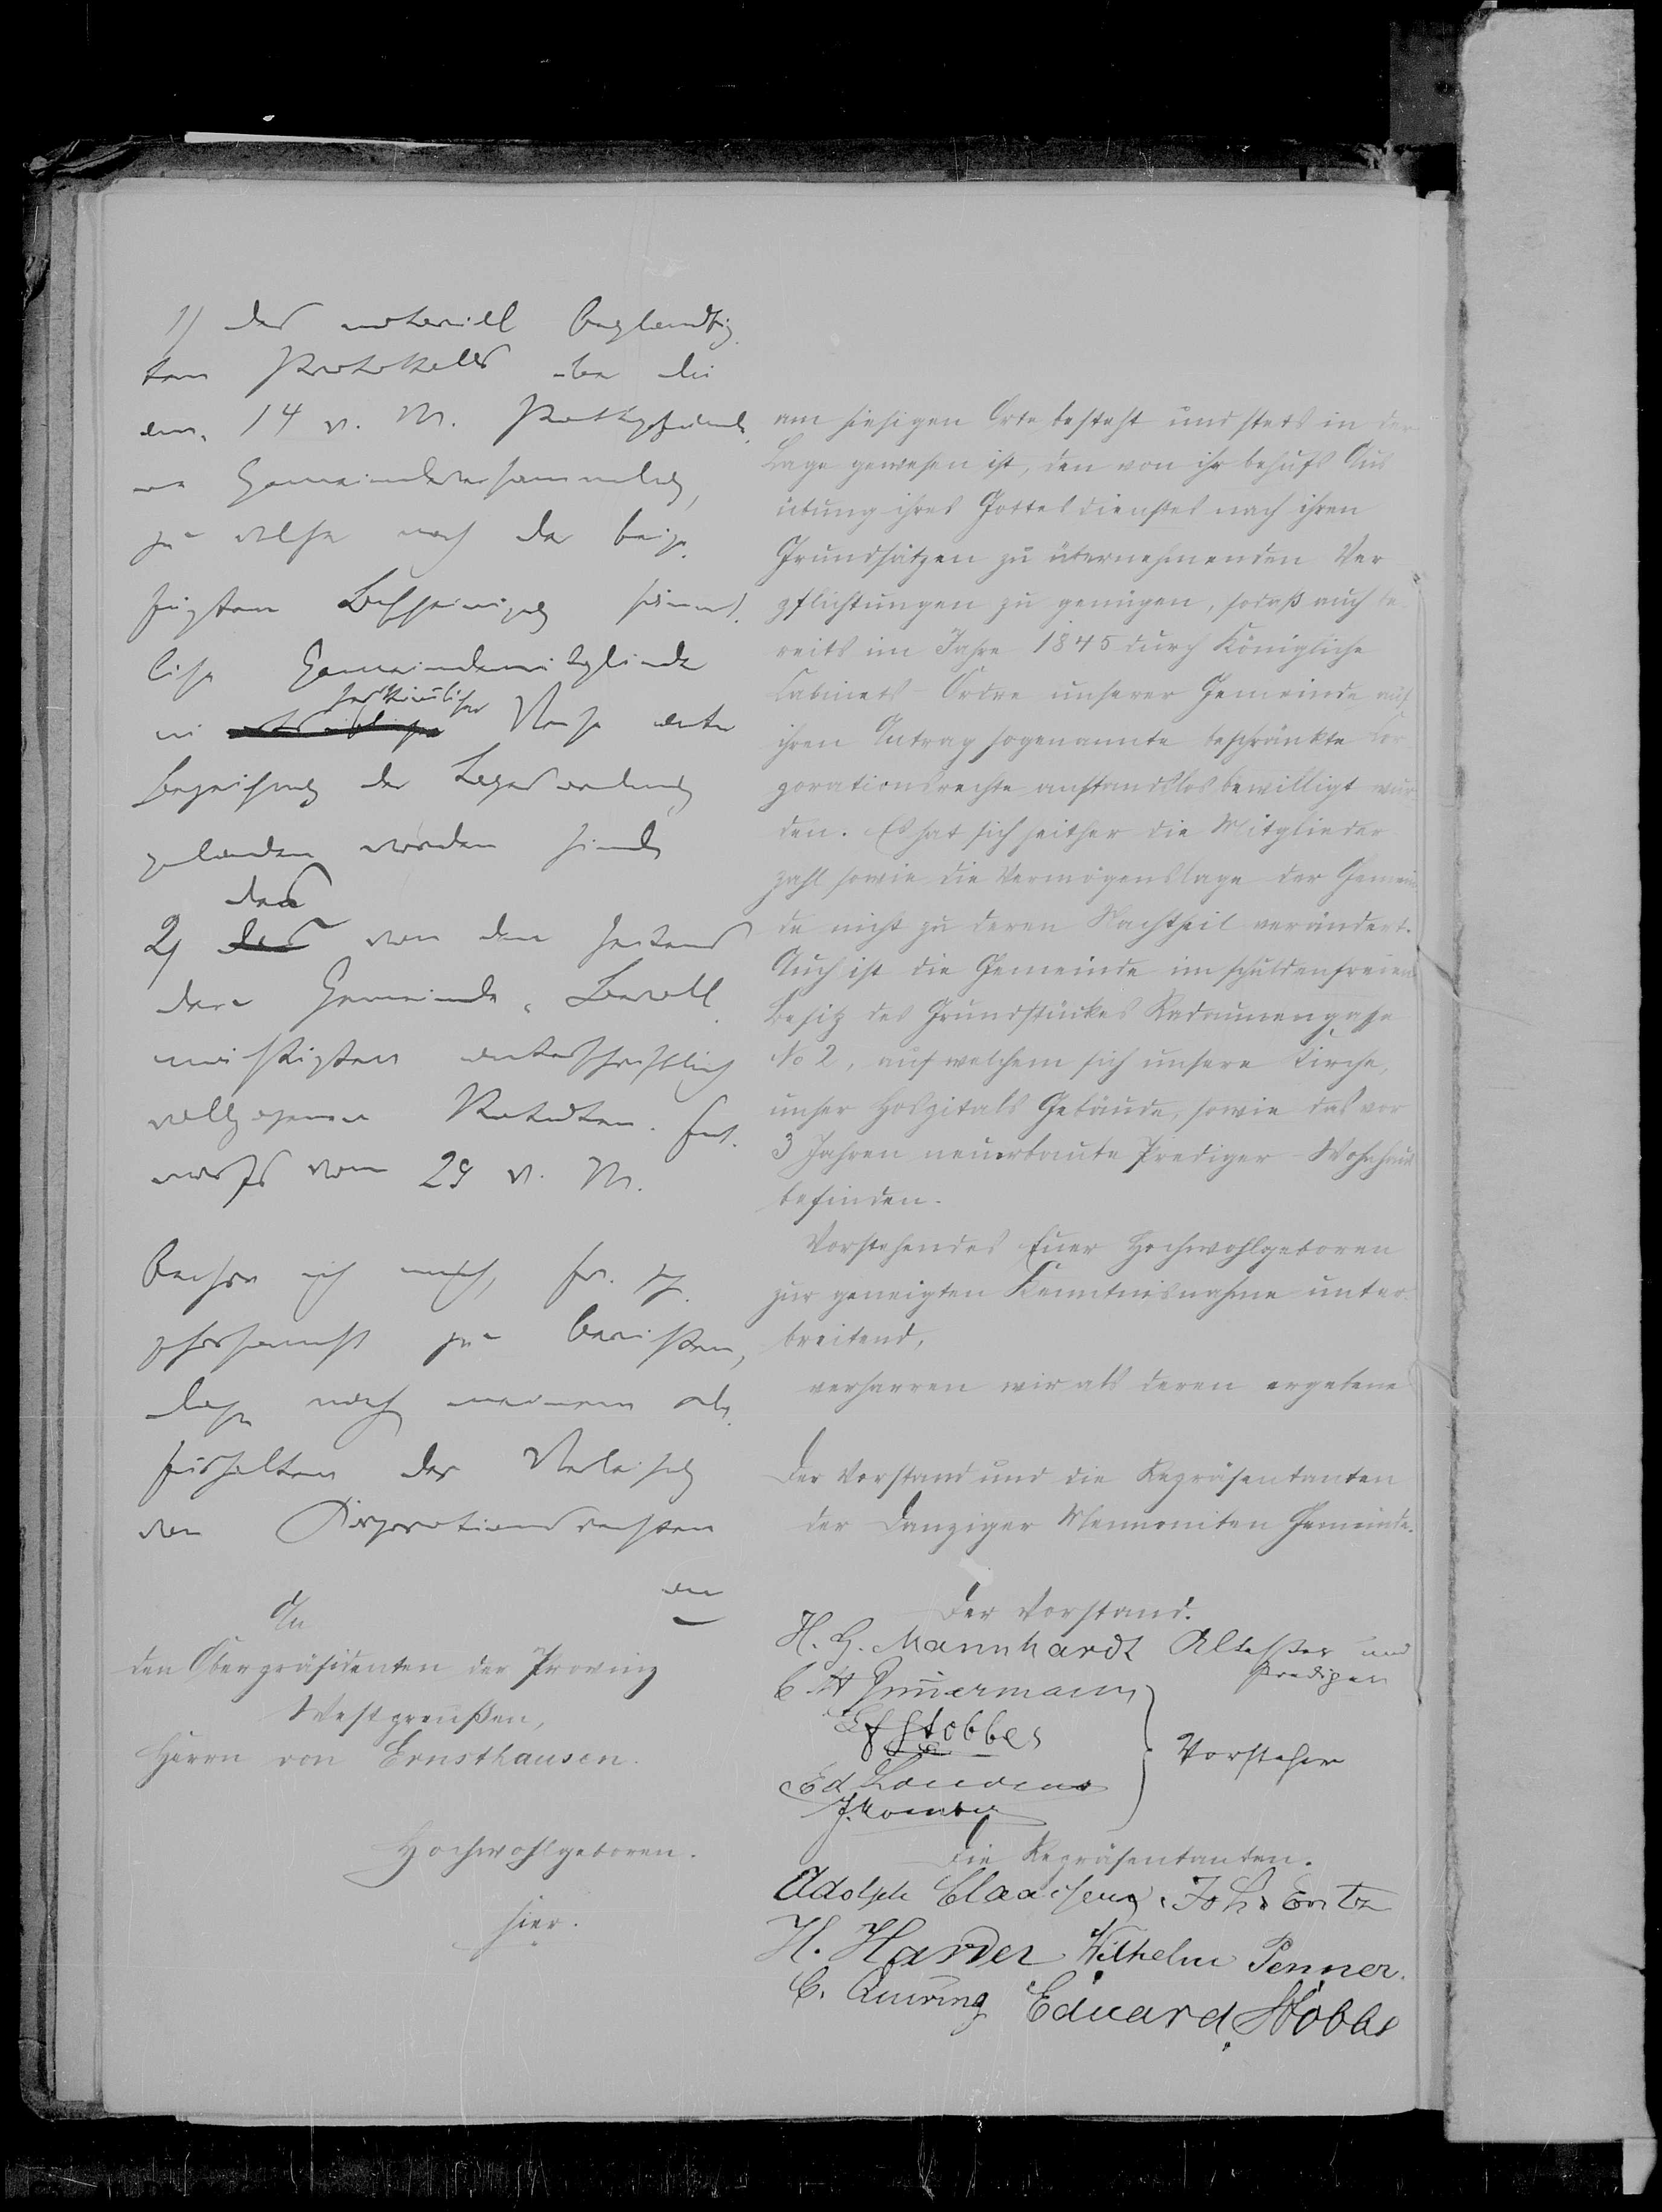 1) des notariell beglaubig
ten Protokolls über die
am 14 v. M. stattgefunde
ne Gemeindeversammlung,
zu welcher nach der beige
fügten Bescheinigung sämmt
liche Gemeindemitglieder
in herkömmlicher Weise unter
Bezeichnung der Tagesordnung
geladen worden sind,
2) des von den Seitens
der Gemeinde Bevoll
mächtigten unterschriftlich
vollzogenen Statuten Ent
wurfs vom 29 v. M.
beehre ich mich,
gehorsamst zu berichten,
daß nach meinem
der Verleihung
von Corporationsrechten
an
An
den Oberpräsidenten der Provinz
Westpreußen,
Herrn von Ernsthausen.
Hochwohlgeboren.
hier.
am hiesigen Orte besteht und stets in der
Lage gewesen ist, den von ihr behufs Aus
übung ihres Gottesdienstes nach ihren
Grundsätzen zu übernehmenden Ver
pflichtungen zu genügen, sodaß auch be
reits im Jahre 1845 durch Königliche
Cabinets-Ordre unserer Gemeinde auf
ihren Antrag sogenannte beschränkte Cor
porationsrechte anstandslos bewilligt wur
den. Es hat sich seither die Mitglieder
zahl sowie die Vermögenslage der Gemein
de nicht zu deren Nachtheil verändert.
Auch ist die Gemeinde im schuldenfreien
Besitz des Grundstückes Radaunengasse
No 2, auf welchem sich unsere Kirche,
unser Hospitals Gebäude, sowie das vor
3 Jahren neuerbaute Prediger-Wohnhaus
befinden.
Vorstehendes Euer Hochwohlgeboren
zur geneigten Kenntnisnahme unter
breitend,
verharren wir als deren ergebene
Der Vorstand und die Repräsentanten
der Danziger Mennoniten Gemeinde.
Der Vorstand.
H. G. Mannhardt Ältester und
Prediger
C H Zimmermann
Stobbe
Vorsteher
Ed
Die Repräsentanten.
Adolph Claassen. Joh. Entz
H. Harder Wilhelm Penner.
C. Quiring Eduard Stobbe